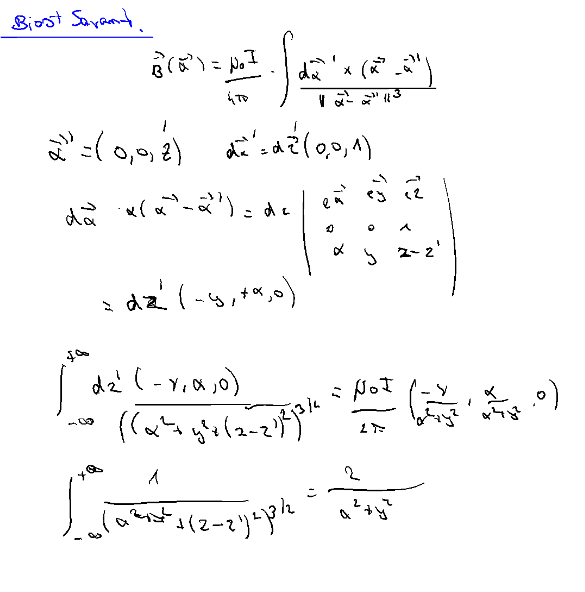 Biost Savart.
B⃗(x⃗) = μ₀I/4π · ∫ dx⃗' × (x⃗ - x⃗')/‖x⃗ - x⃗'‖³
x⃗' = (0,0,z') dx⃗' = dz'(0,0,1)
dx⃗ × (x⃗ - x⃗') = dz | e⃗x e⃗y e⃗z
0 0 1
x y z-z' |
= dz' (-y, +x, 0)
∫_{-∞}^{+∞} dz' (-y, x, 0)/((x²+y²+(z-z')²)^{3/2} = μ₀I/2π (-y/x²+y², x/x²+y², 0)
∫_{-∞}^{+∞} 1/(x²+y²+(z-z')²)^{3/2} = 2/x²+y²